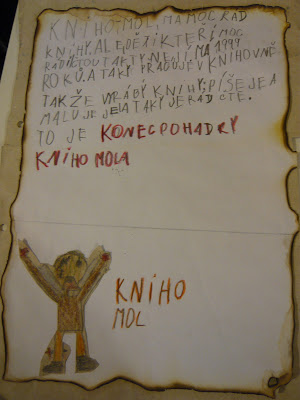 KNIHO-MOL, MÁ MOC RÁD
KNÍHY, ALE DĚTI KTERÍ MOC
RÁDI ČTOU TAKTY NEJÍ MÁ 1999
ROKŮ. A TAKY PRACUJE V KNIHOVNĚ
TAKŽE VYRÁBÝ KNIHY, PÍŠE JE A
MALUJE JE A TAKÝ JE RÁD ČTE.
TO JE KONEC POHADKY
KNIHO MOLA
KNIHO
MOL